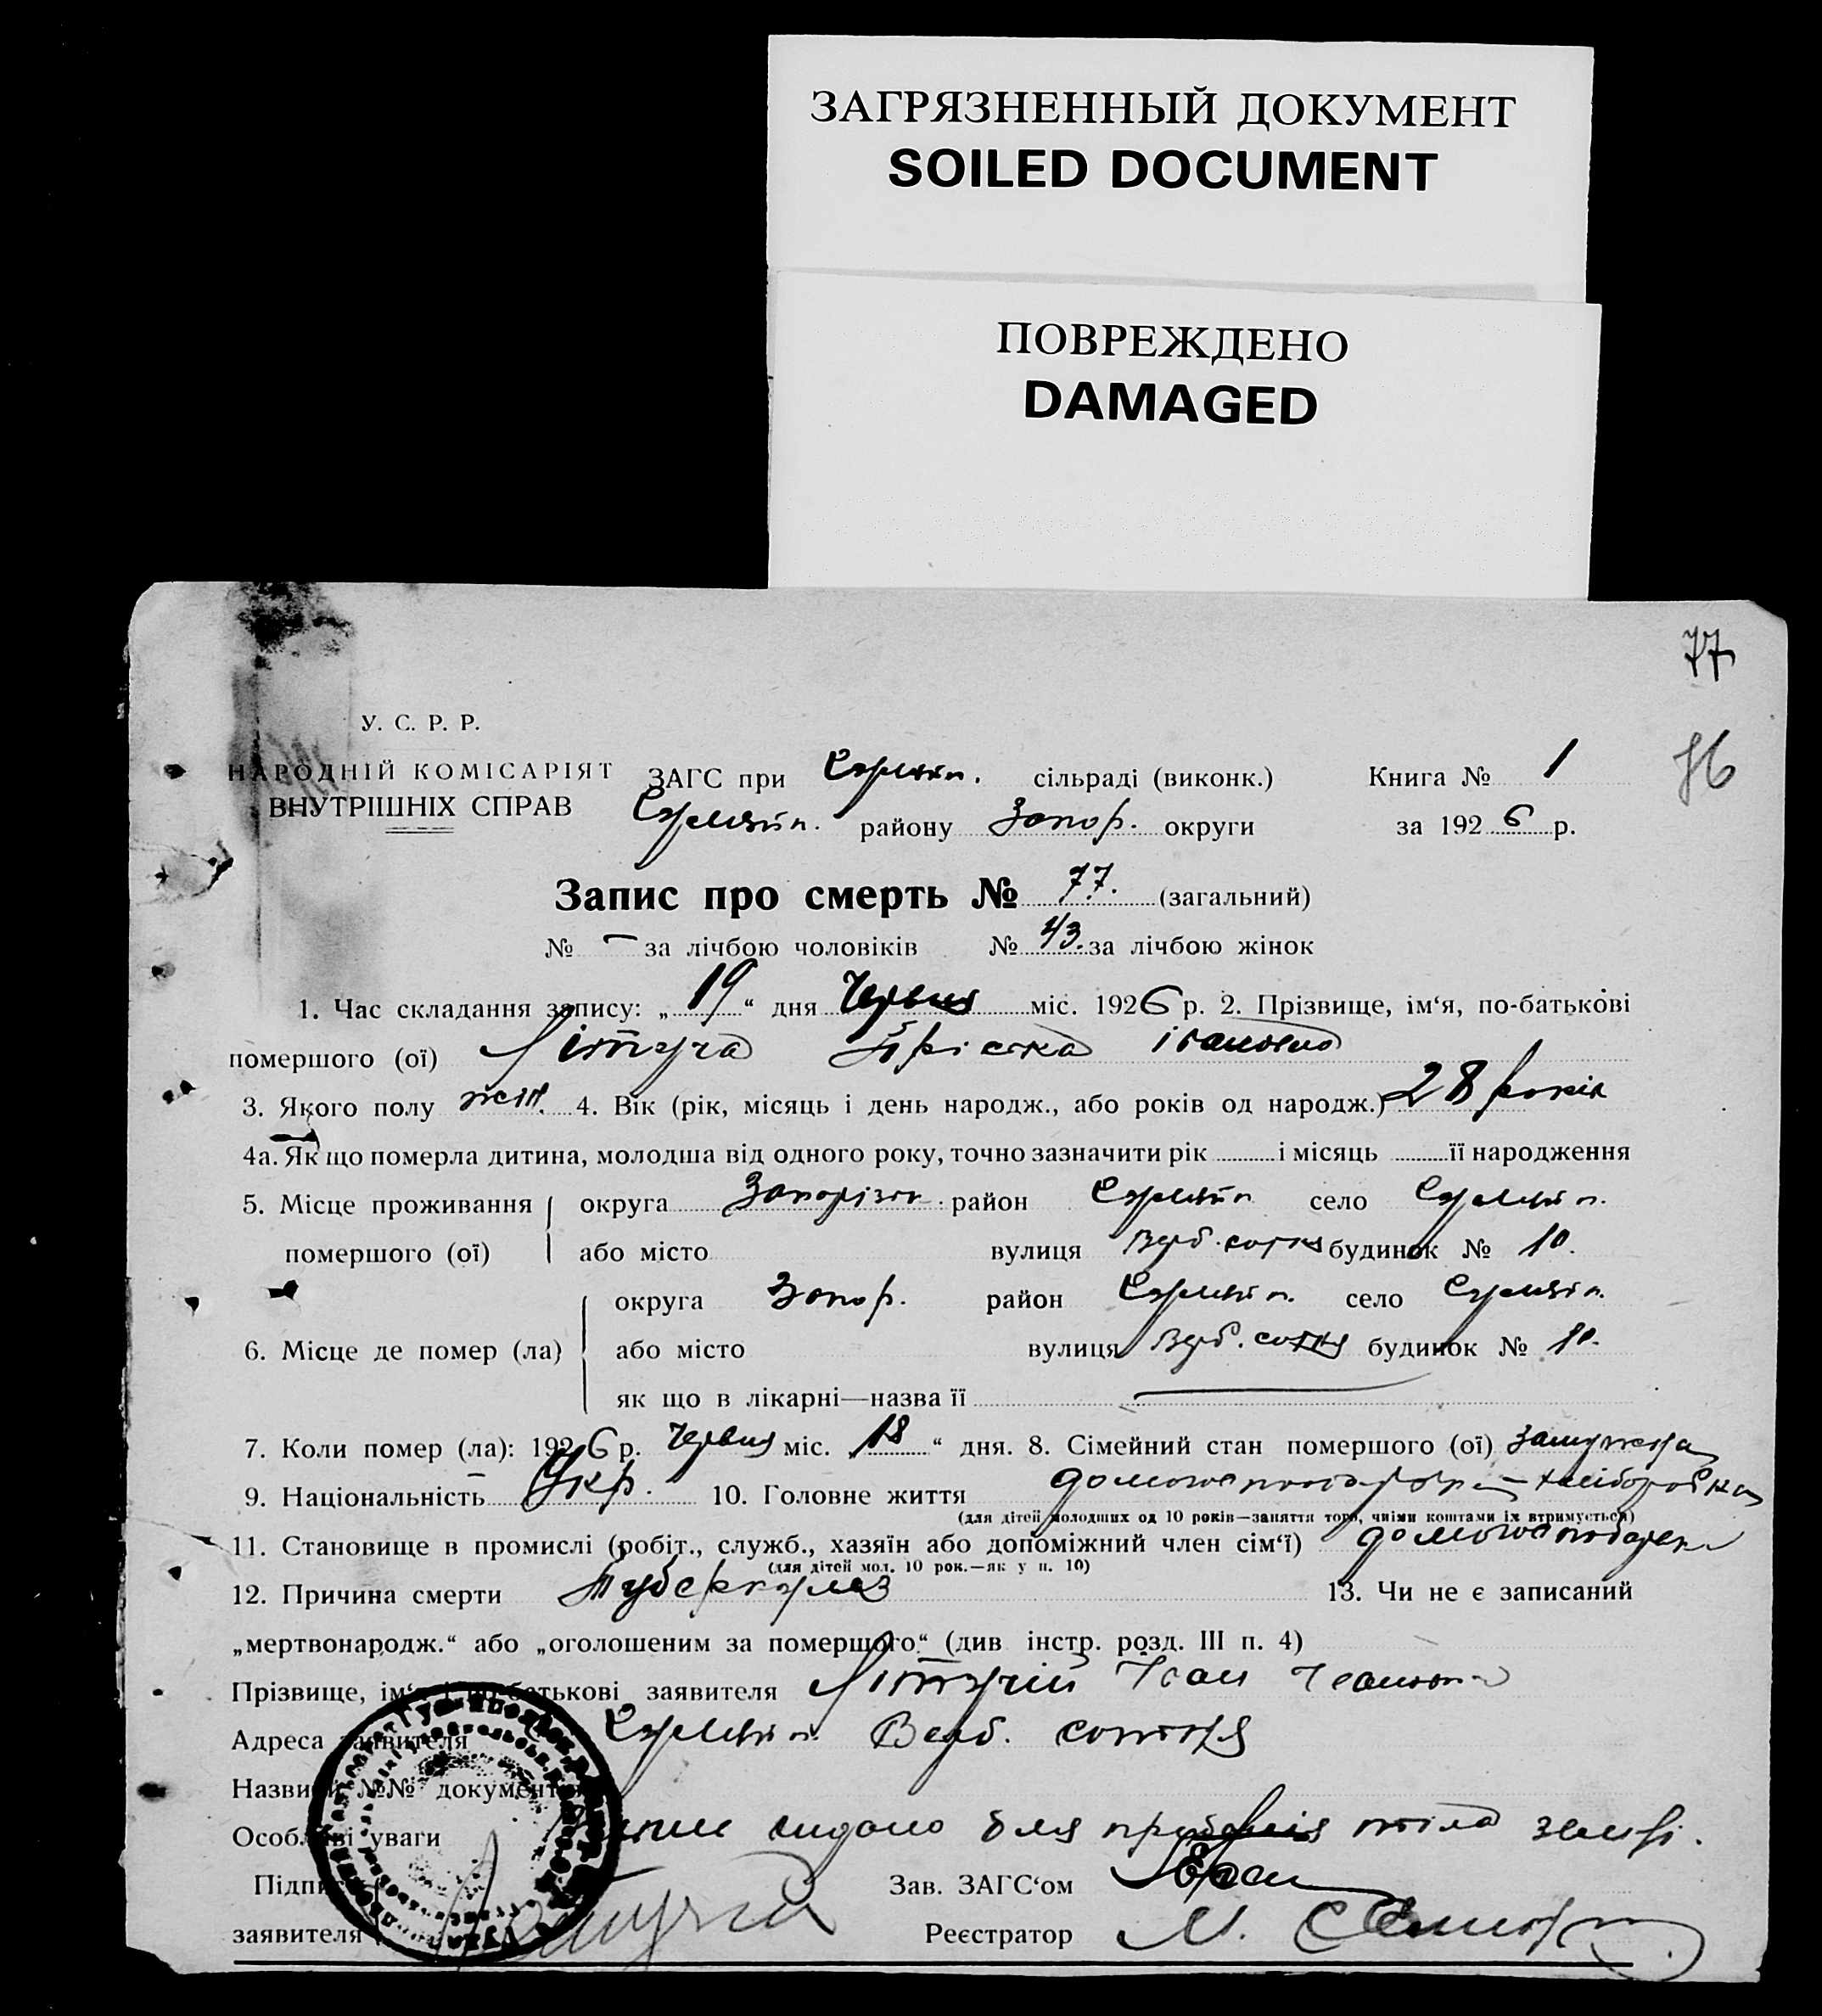 ЗАГРЯЗНЕННЫЙ ДОКУМЕНТ
SOILED DOCUMENT
ПОВРЕЖДЕНО
DAMAGED
77
76
У. С. Р. Р.
НАРОДНІЙ КОМІСАРІЯТ
ВНУТРІШНІХ СПРАВ
ЗАГС при сільраді (виконк.) Книга № 1
району Запор. округи за 1926 р.
Запис про смерть № 77. (загальний)
№ — за лічбою чоловіків № 43. за лічбою жінок
1. Час складання запису: „19“ дня Червня міс. 1926 р. 2. Прізвище, ім‘я, по-батькові
помершого (ої) Літуча Фріська Івановна
3. Якого полу жін. 4. Вік (рік, місяць і день народж., або років од народж.) 28 років
4а. Як що померла дитина, молодша від одного року, точно зазначити рік і місяць її народження
5. Місце проживання округа Запорізьк. район село
помершого (ої) або місто вулиця Верб. сотня будинок № 10.
округа Запор. район село
6. Місце де помер (ла) або місто вулиця Верб. сотня будинок № 10.
як що в лікарні—назва її —
7. Коли помер (ла): 1926 р. Червня міс. 18 “ дня. 8. Сімейний стан помершого (ої) замужня
9. Національність Укр. 10. Головне життя хліборобка
(для дітей молодших од 10 років—заняття того, чиїми коштами їх втримується)
11. Становище в промислі (робіт., служб., хазяїн або допоміжний член сім‘ї)
(для дітей мол. 10 рок.—як у п. 10)
12. Причина смерти Туберкульоз 13. Чи не є записаний
„мертвонародж.“ або „оголошеним за помершого“ (див інстр. розд. III п. 4)
Прізвище, ім‘я і по-батькові заявителя Літучій Іван
Адреса заявителя Верб. сотня
Назви й №№ документів
Особливі уваги видано для тіла землі.
Підпис Зав. ЗАГС‘ом
заявителя Реєстратор М.